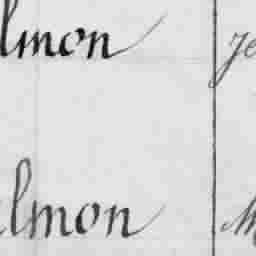 lmon Je
almon M